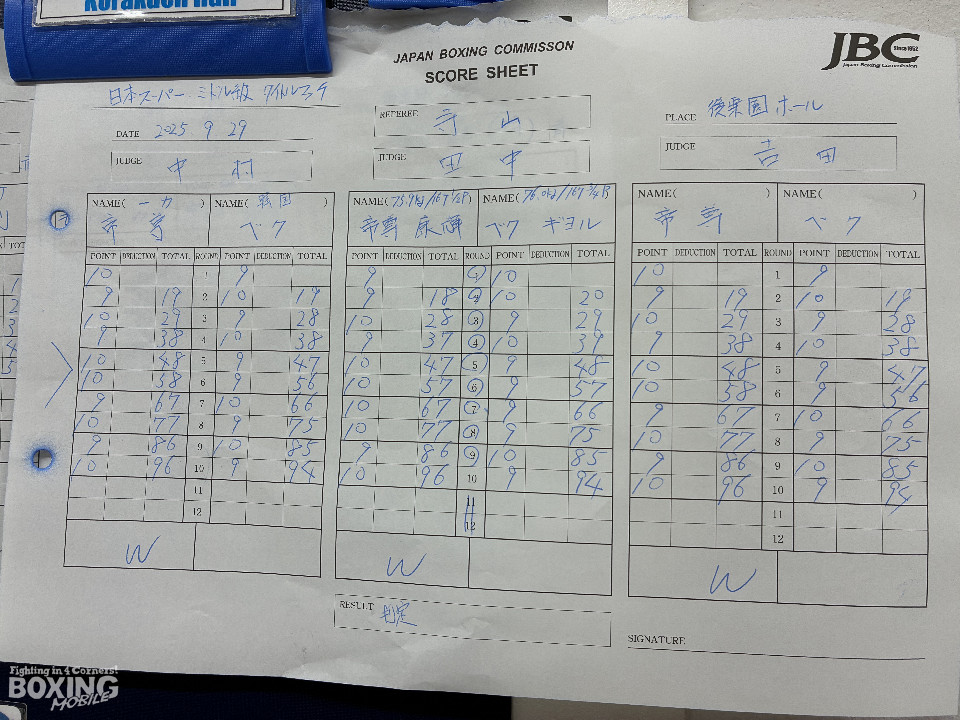 Korakuen Hall
JAPAN BOXING COMMISSON
SCORE SHEET
JBC Since 1952
Japan Boxing Commission
日本スーパー・ミドル級 タイトルマッチ
DATE 2025 9 29
REFEREE 寺山
PLACE 後楽園ホール
JUDGE 中村
JUDGE 田中
JUDGE 吉田
NAME( 一力 ) NAME( 韓国 ) NAME(75.9kg/167 1/4P) NAME(76.0kg/167 3/4P) NAME( ) NAME( )
帝尊 ベク 帝尊 康輝 ベク ギヨル 帝尊 ベク
POINT DEDUCTION TOTAL ROUND POINT DEDUCTION TOTAL POINT DEDUCTION TOTAL ROUND POINT DEDUCTION TOTAL POINT DEDUCTION TOTAL ROUND POINT DEDUCTION TOTAL
10 1 9 9 1 10 10 1 9
9 19 2 10 19 9 18 2 10 20 9 19 2 10 19
10 29 3 9 28 10 28 3 9 29 10 29 3 9 28
9 38 4 10 38 9 37 4 10 39 9 38 4 10 38
10 48 5 9 47 10 47 5 9 48 10 48 5 9 47
10 38 6 9 56 10 57 6 9 57 10 58 6 9 56
9 67 7 10 66 10 67 7 9 66 9 67 7 10 66
10 77 8 9 75 10 77 8 9 75 10 77 8 9 75
9 86 9 10 85 9 86 9 10 85 9 86 9 10 85
10 96 10 9 94 10 96 10 9 94 10 96 10 9 94
11 11 11
12 12 12
W W W
RESULT 判定
SIGNATURE
Fighting in 4 Corners!
BOXING
MOBILE